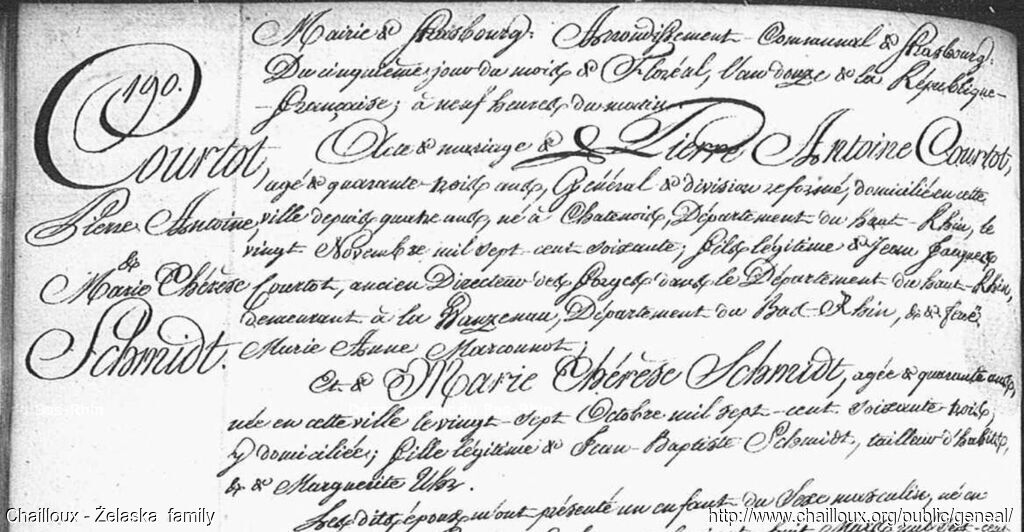 190.
Courtot,
Pierre Antoine,
&
Marie Thérèse
Schmidt.
Mairie de Strasbourg. Arrondissement Communal de Strasbourg.
Du cinquième jour du mois de Floréal, l'an douze de la République
française; à neuf heures du matin.
Acte de mariage de Pierre Antoine Courtot,
agé de quarante-trois ans, Général de division réformé, domicilié en cette
ville depuis quatre ans, né à Chatenois, Département du haut-Rhin, le
vingt Novembre mil sept-cent soixante; fils légitime de Jean Jacques
Courtot, ancien Directeur des forges dans le Département du haut-Rhin,
demeurant à la Wanzenau, Département du Bas-Rhin, & de feue
Marie Anne Marconnot;
Et de Marie Thérèse Schmidt, agée de quarante ans,
née en cette ville le vingt-sept Octobre mil sept-cent soixante-trois,
y domiciliée; fille légitime de Jean-Baptiste Schmidt, tailleur d'habits,
& de Marguerite Uhr.
Lesdits époux m'ont présenté un enfant du Sexe masculin, né en
Chailloux - Żelaska family
http://www.chailloux.org/public/geneal/